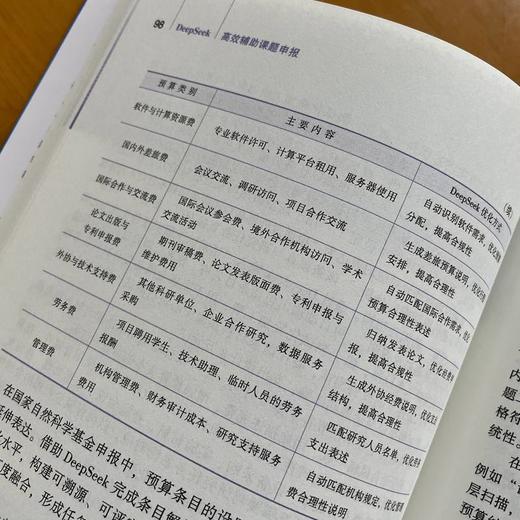 98 DeepSeek 高效辅助课题申报
（续）
预算类别 主要内容 DeepSeek优化方式
软件与计算资源费 专业软件许可、计算平台租用、服务器使用 自动识别软件需求，优化预算
分配，提高合理性
国内外差旅费 会议交流、调研访问、项目合作交流 生成差旅预算说明，优化行程
安排，提高合理性
国际合作与交流费 国际会议参会费、境外合作机构访问、学术
交流活动 自动匹配国际合作需求，优化
预算合理性表述
论文出版与
专利申报费 期刊审稿费、论文发表版面费、专利申报与
维护费用 归纳发表论文，优化经费
报，提高合规性
外协与技术支持费 其他科研单位、企业合作研究，数据服务
采购 生成外协经费说明，优化
结构，提高合理性
劳务费 项目聘用学生、技术助理、临时人员的劳务
报酬 匹配研究人员名单，优化劳务
支出表述
管理费 机构管理费、财务审计成本、研究支持服务
费用 自动匹配机构规定，优化管理
费合理性说明
在国家自然科学基金申报中，预算条目的设
延伸表达。借助DeepSeek完成条目解
水平，构建可溯源、可评
度融合，形成任
内
题
格符
统性。
在
例如“
层扫描，
预算结